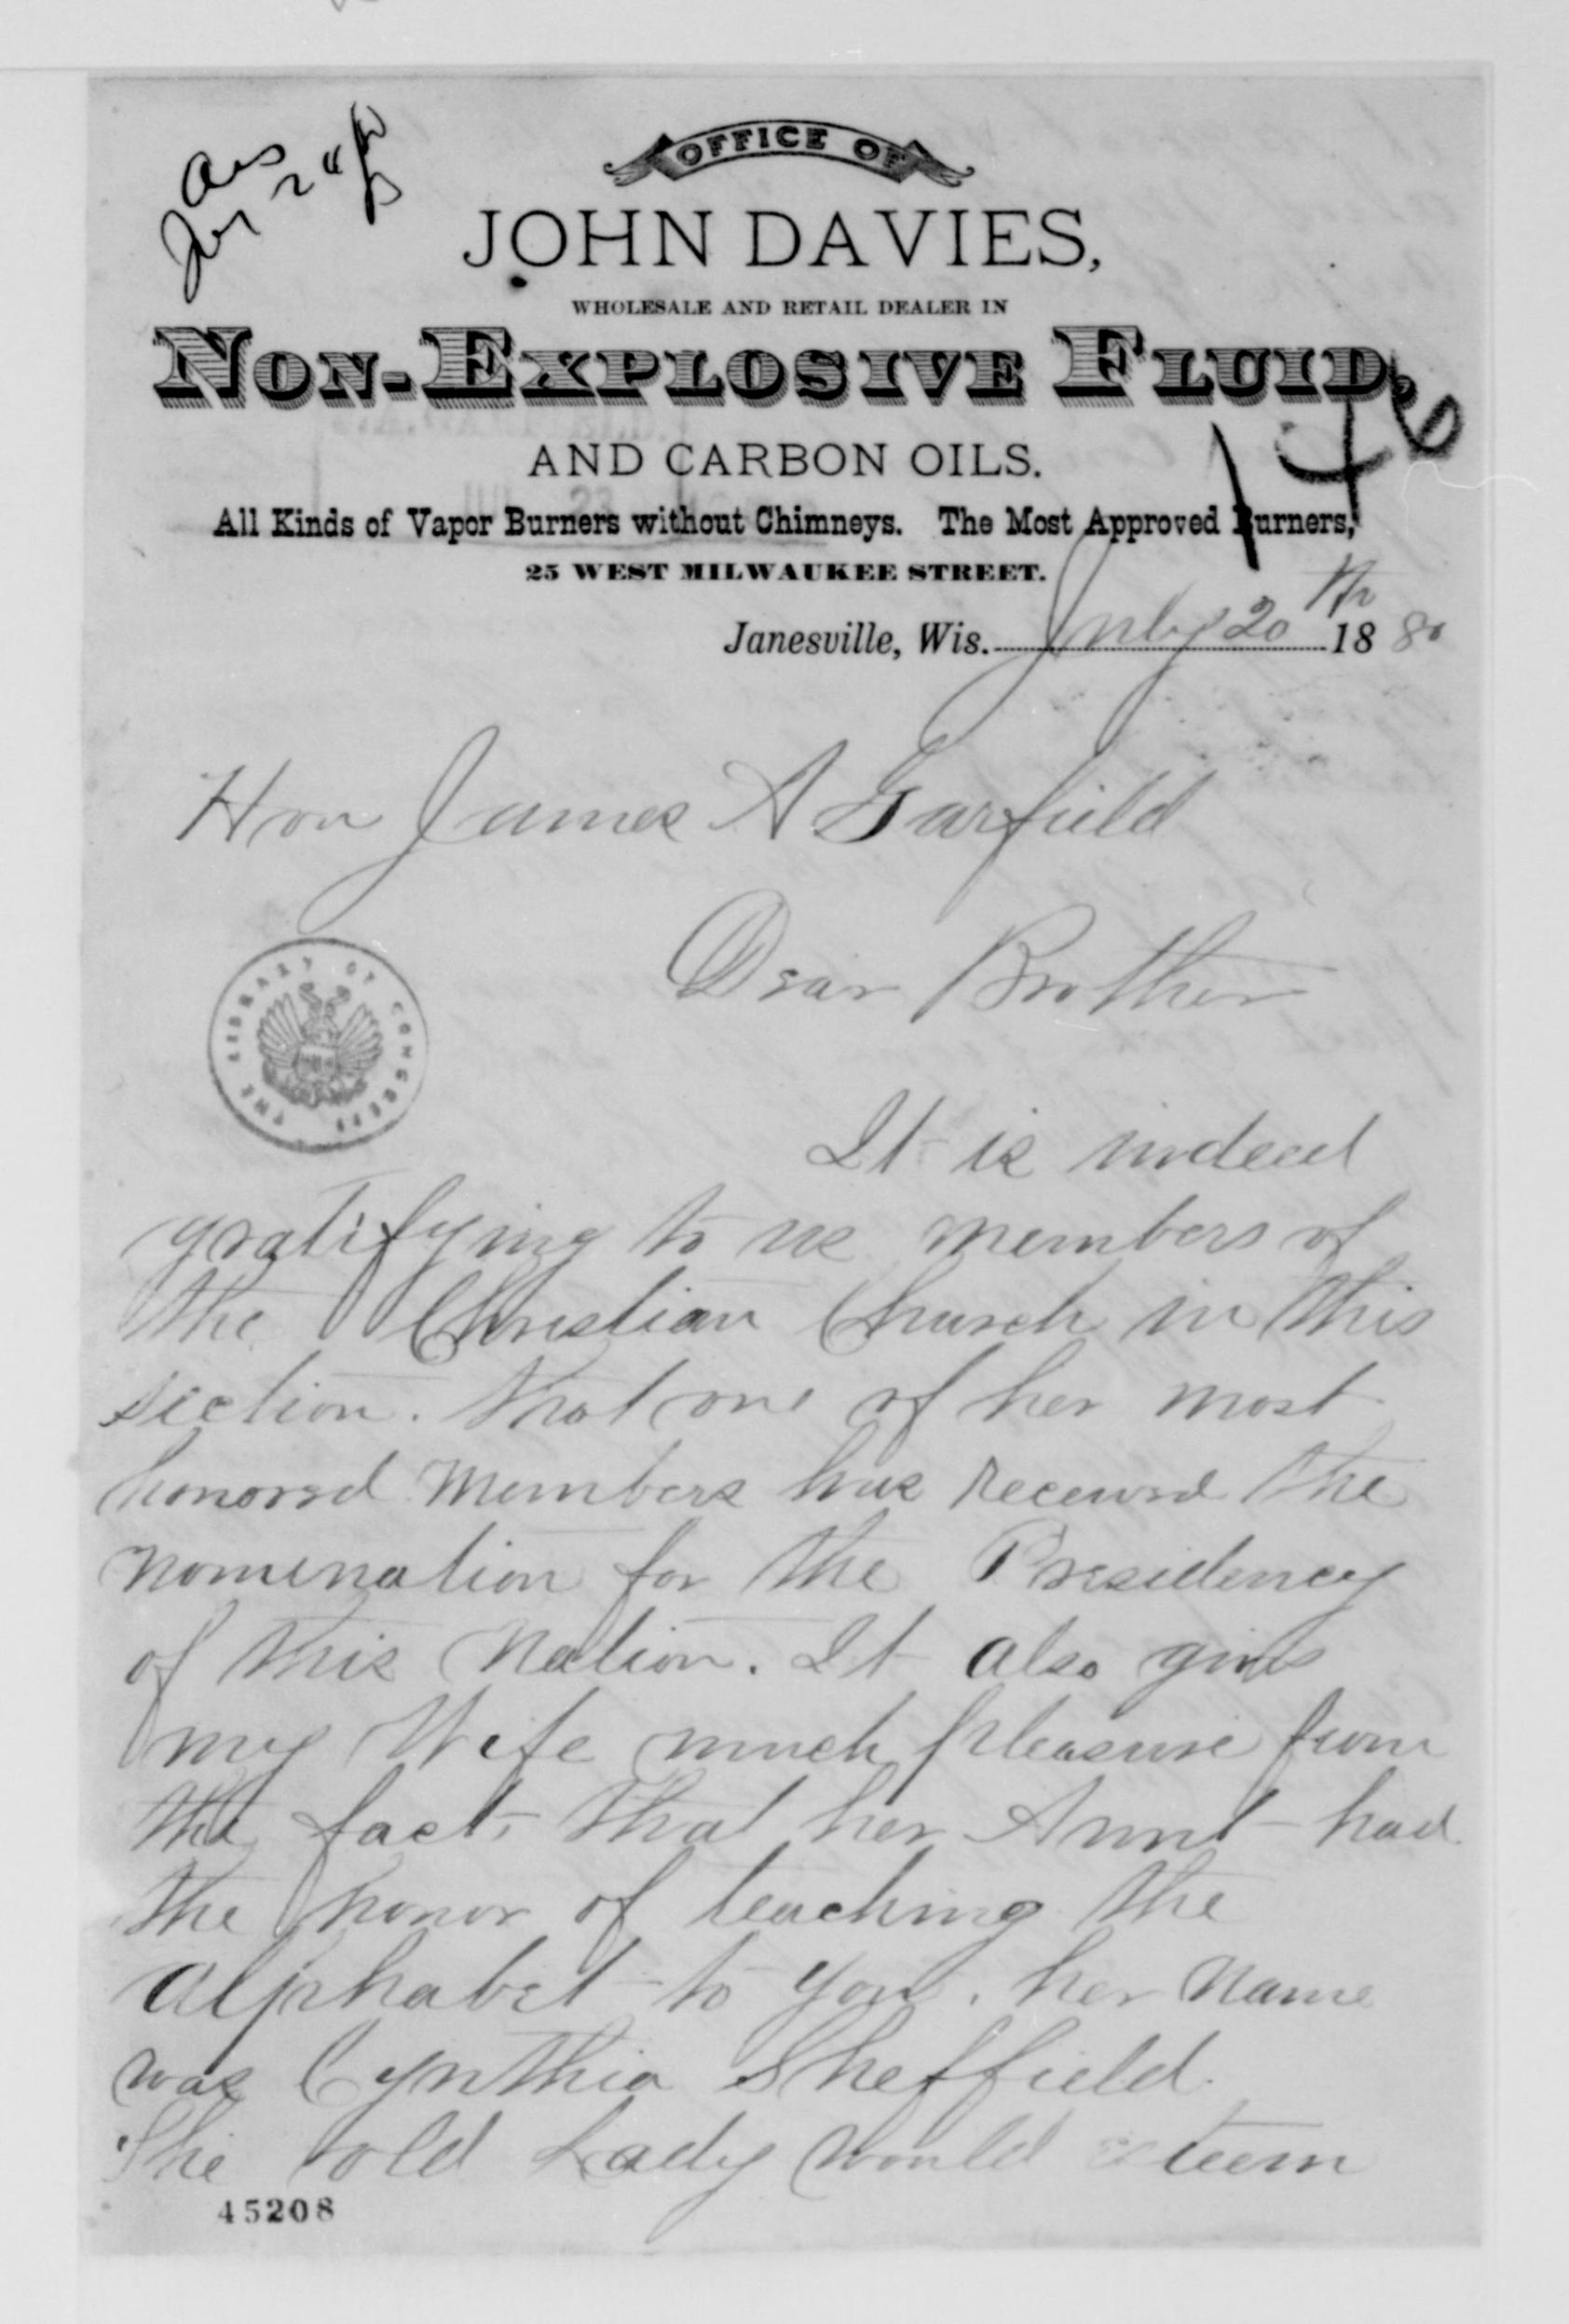 Ans
July 24/80
OFFICE OF
JOHN DAVIES,
WHOLESALE AND RETAIL DEALER IN
NON-EXPLOSIVE FLUID,
AND CARBON OILS.
146
All Kinds of Vapor Burners without Chimneys. The Most Approved Burners,
25 WEST MILWAUKEE STREET.
Janesville, Wis. July 20th 1880
Hon James A Garfield
Dear Brother
THE LIBRARY OF CONGRESS
It is indeed
gratifying to us members of
the Christian Church in this
section. that one of her most
honored members has received the
nomination for the Presidency
of this Nation. It also gives
my Wife much pleasure from
the fact, that her Aunt had
the honor of teaching the
alphabet to you. her name
was Cynthia Sheffield.
The old Lady would esteem
45208